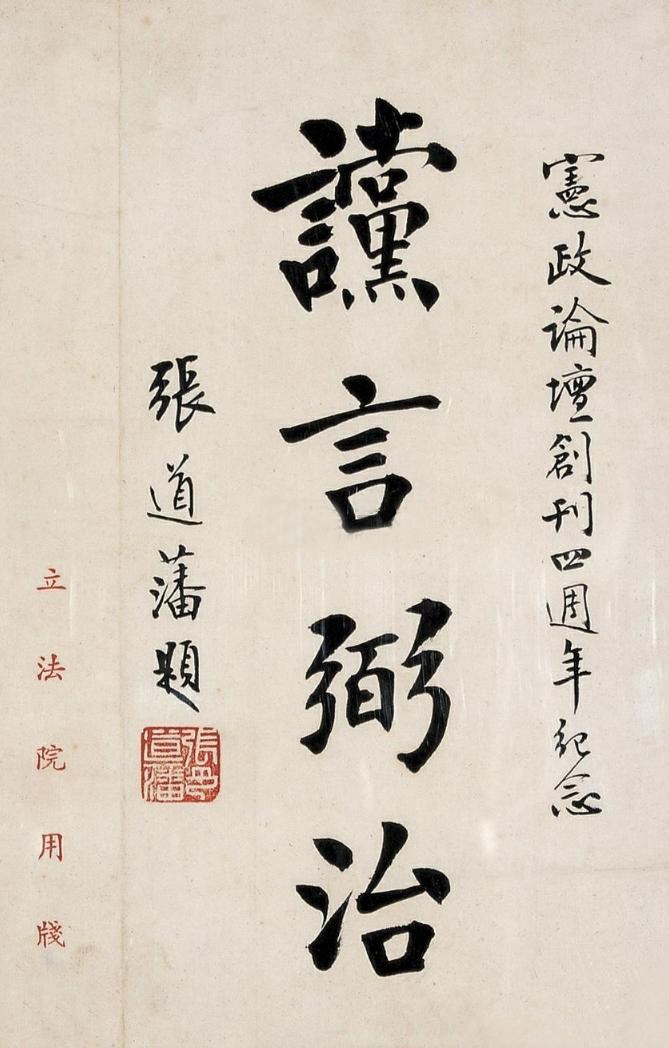 憲政論壇創刊四週年紀念
讜言弼治
張道藩題
立法院用牋